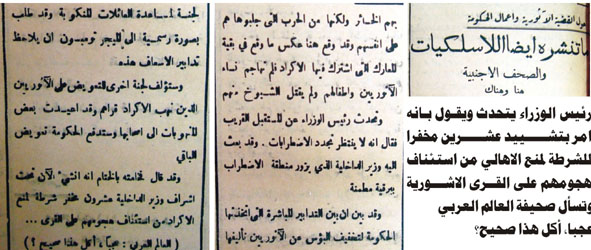 حول القضية الآثورية واعمال الحكومة
ما تنشره ايضا اللاسلكيات
والصحف الاجنبية
هنا وهناك
رئيس الوزراء يتحدث ويقول بانه
امر بتشييد عشرين مخفرا
للشرطة لمنع الاهالي من استئناف
هجومهم على القرى الاشورية
وتسأل صحيفة العالم العربي
عجبا. أكل هذا صحيح؟
بهم الخسائر ولكنها من الحرب التي جلبوها هم
على انفسهم وقد وقع هذا عكس ما وقع في بقية
المعارك التي اشترك فيها الاكراد فلم تهاجم نساء
الآثوريين واطفالهم ولم يقتل الشيوخ منهم
وتحدث رئيس الوزراء عن المستقبل القريب
فقال انه لا ينتظر تجدد الاضطرابات . وقد بعث
اليه وزير الداخلية الذي يزور منطقة الاضطراب
ببرقية مطمئنة
وقد بين ان بين التدابير للباشرة التي اتخذتها
الحكومة لتخفيف البؤس عن الآثوريين تأليفها
لجنة لمساعدة العائلات المنكوبة وقد طلب
بصورة رسمية الى الميجر تومبسون ان يلاحظ
تدابير الاسعاف هذه
وستؤلف لجنة اخرى للتعويض على الآثوريين
الذين نهب الاكراد قراهم وقد اعيدت بعض
المنهوبات الى اصحابها وستدفع الحكومة تعويض
الباقي
وقد قال فخامته بالختام انه انشيء الآن تحت
اشراف وزير الداخلية عشرون مخفر شرطة لمنع
الاكراد من استئناف هجومهم على القرى ...
( العالم العربي : عجباً ، أكل هذا صحيح ؟ )